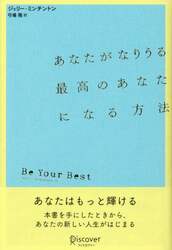 ジェリー・ミンチントン
弓場 隆 訳
あなたがなりうる
最高のあなた
になる方法
Be Your Best
あなたはもっと輝ける
本書を手にしたときから、
あなたの新しい人生がはじまる
Discover